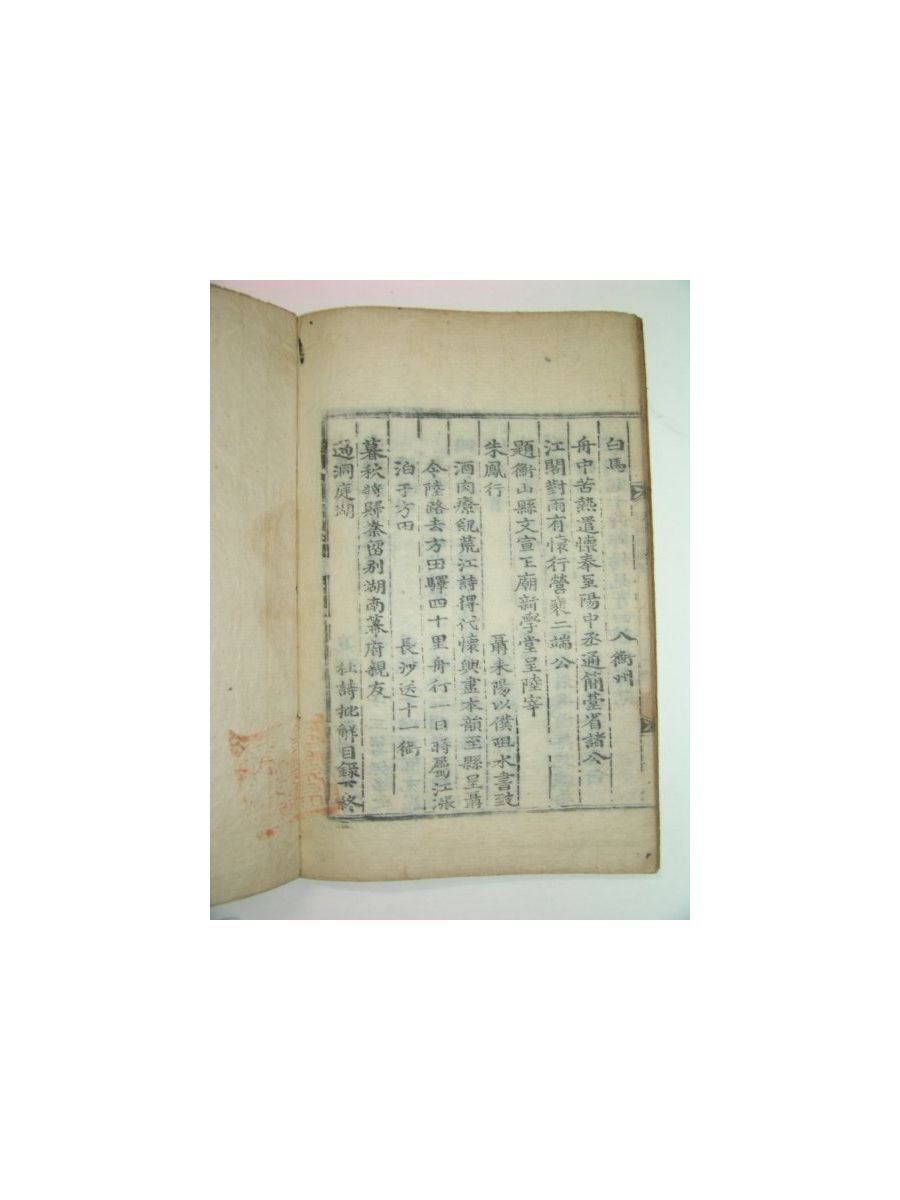 白馬 入衡州
舟中苦熱遣懷奉呈陽中丞通簡臺省諸公
江閣對雨有懷行營裵二端公
題衡山縣文宣王廟新學堂呈陸宰
朱鳳行 聶耒陽以僕阻水書致
酒肉療飢荒江詩得代懷興盡本韻至縣呈聶
令陸路去方田驛四十里舟行一日時屬江漲
泊于方田 長沙送十一
暮秋將歸秦留別湖南幕府親友
過洞庭湖 杜詩批解目錄下終